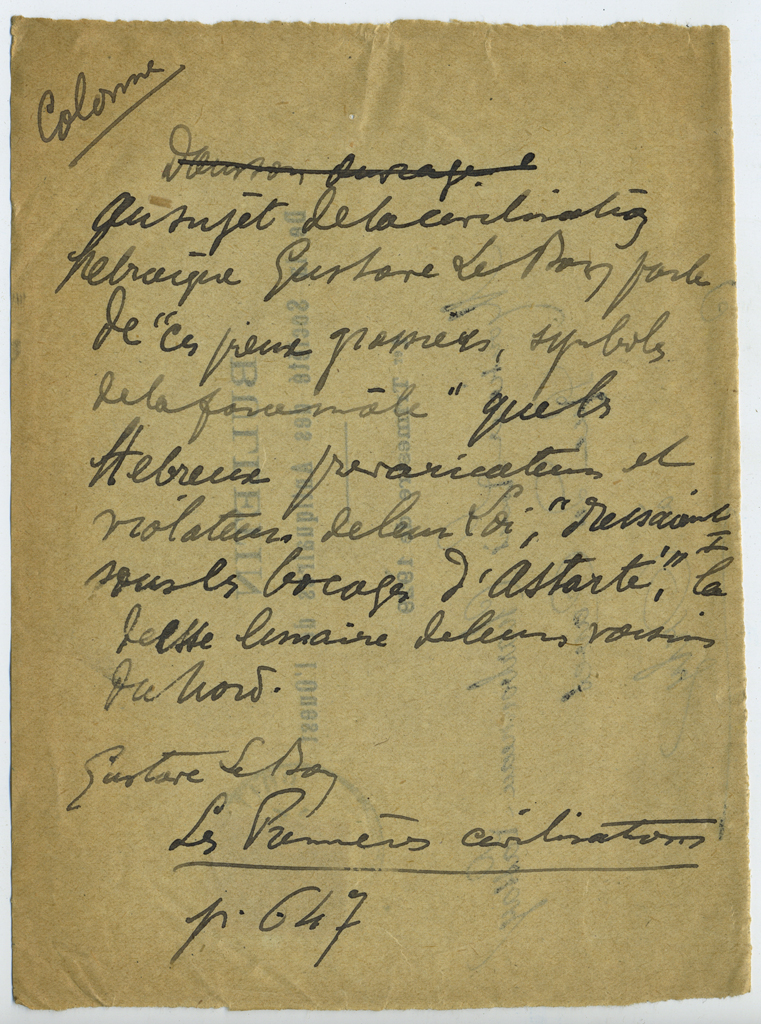 Colonne
Dans son ouvrage
Au sujet de la civilisation
hébraïque Gustave Le Bon parle
de "ces pieux grossiers, symboles
de la force mâle" que les
Hébreux prévaricateurs et
violateurs de leur Loi, "dressaient
sous les bocages d'Astarté", la
déesse lunaire de leurs voisins
du Nord.
Gustave Le Bon
Les Premières civilisations
p. 647
BULLETIN
de la Société des Antiquaires de l'Ouest